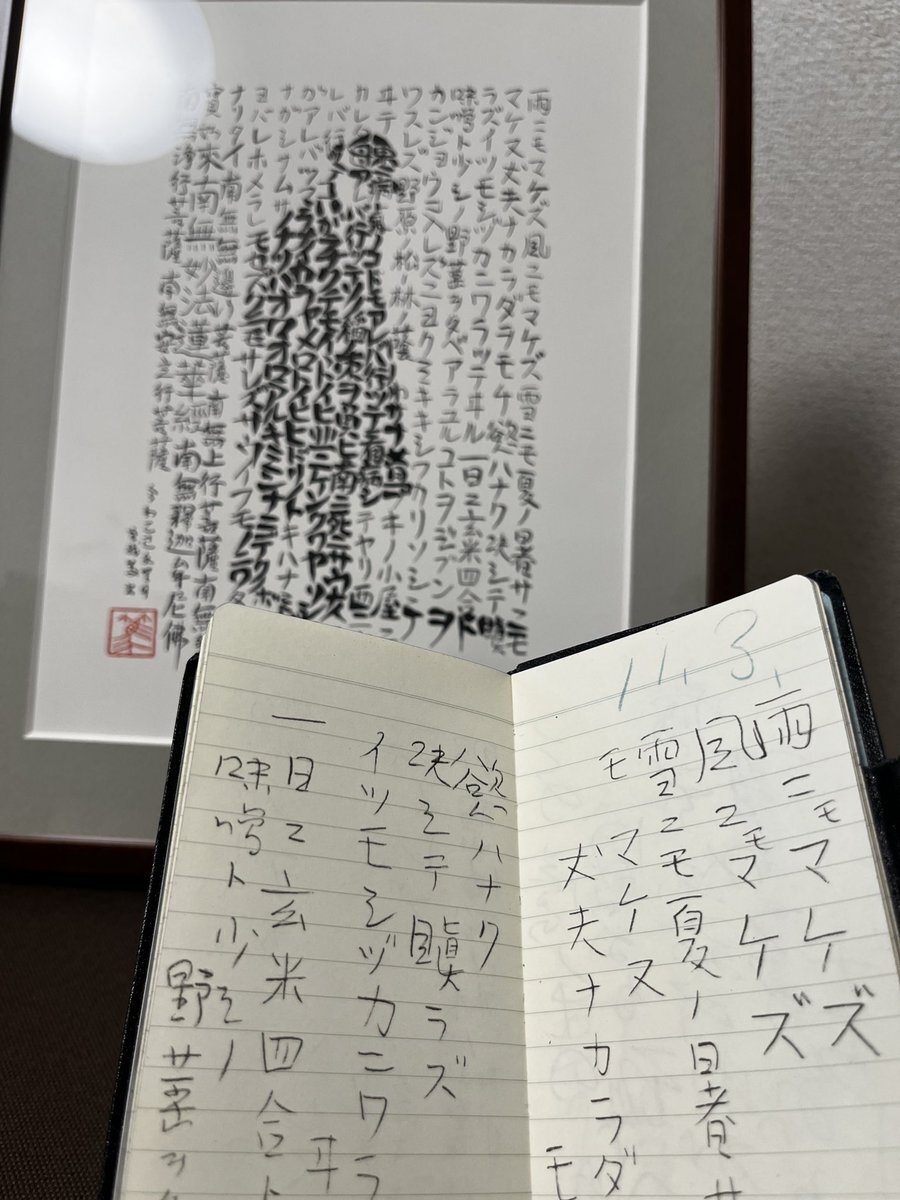 雨ニモマケズ風ニモマケズ雪ニモ夏ノ暑サニモ
マケヌ丈夫ナカラダヲモチ慾ハナク決シテ瞋
ラズイツモシヅカニワラッテヰル一日ニ玄米四合ト
味噌ト少シノ野菜ヲタベアラユルコトヲジブンヲ
カンジョウニ入レズニヨクミキキシワカリソシテ
ワスレズ野原ノ松ノ林ノ蔭ノ小サナ萱ブキノ小屋ニ
ヰテ東ニ病気ノコドモアレバ行ッテ看病シテヤリ西ニ
カレタ母アレバ行ッテソノ稲ノ束ヲ負ヒ南ニ死ニサウナ
レバ行ッテコハガラナクテモイヽトイヒ北ニケンクヮヤソシ
ガアレバツマラナイカラヤメロトイヒヒドリノトキハナ
ナガシサムサノナツハオロオロアルキミンナニデクノボ
ヨバレホメラレモセズクニモサレズサウイフモノニワタ
ナリタイ 南無無邊行菩薩 南無上行菩薩 南無
寳如來南無妙法蓮華経南無釋迦牟尼佛
南無浄行菩薩 南無安立行菩薩
11. 3.
雨ニモマケズ
風ニモマケズ
雪ニモ夏ノ暑サ
モ マケヌ
丈夫ナカラダ
モ
慾ハナク
決シテ瞋ラズ
イツモシヅカニワラ
ヰ
一日ニ玄米四合ト
味噌ト少シノ
野菜ヲ